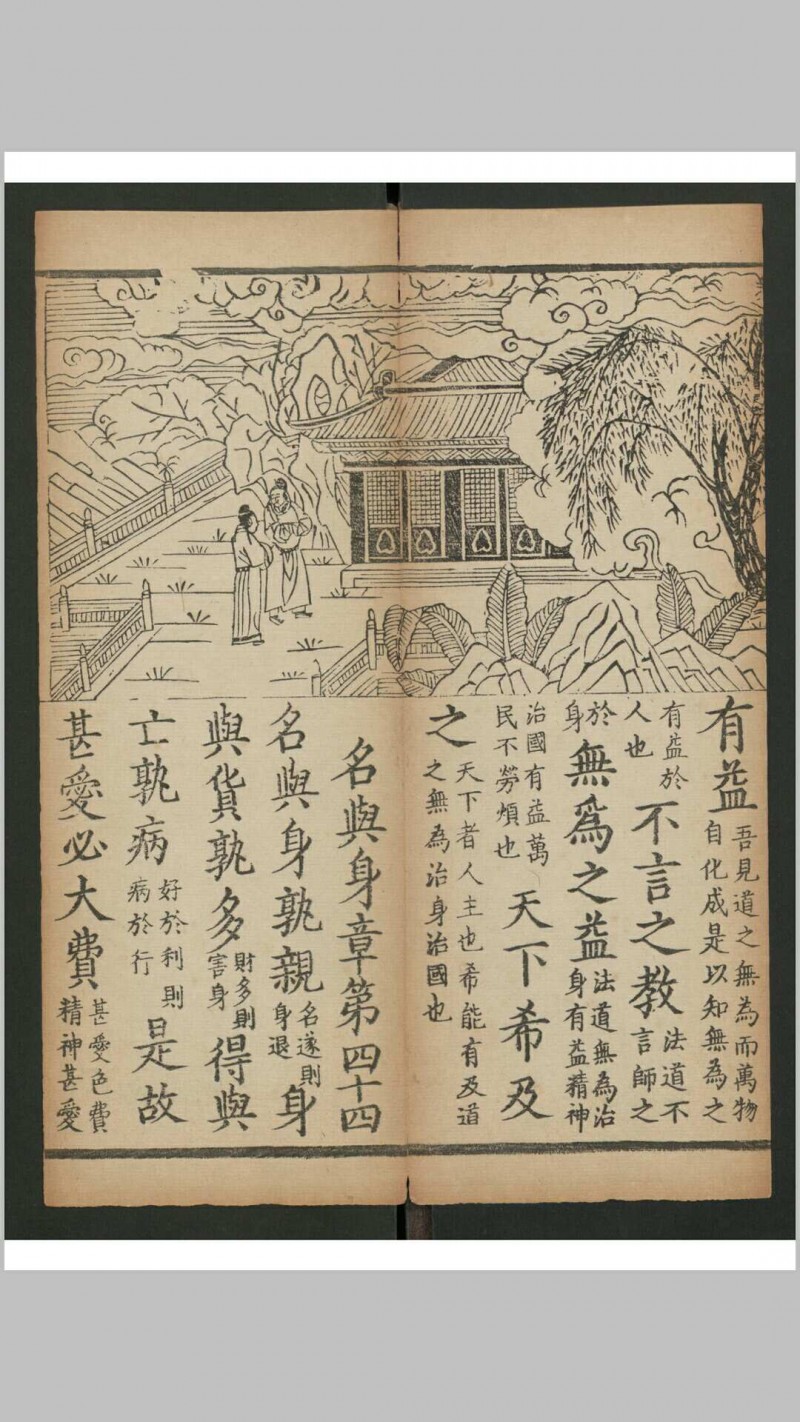 有益吾見道之無為而萬物自化成是以知無為之
有益於人也不言之教法道不言師之
於身無爲之益法道無為治身有益精神
治國有益萬民不勞煩也天下希及
之天下者人主也希能有及道之無為治身治國也
名與身章第四十四
名與身孰親名遂則身退身
與貨孰多財多則害身得與
亡孰病好於利則病於行是故
甚愛必大費甚愛色費精神甚愛